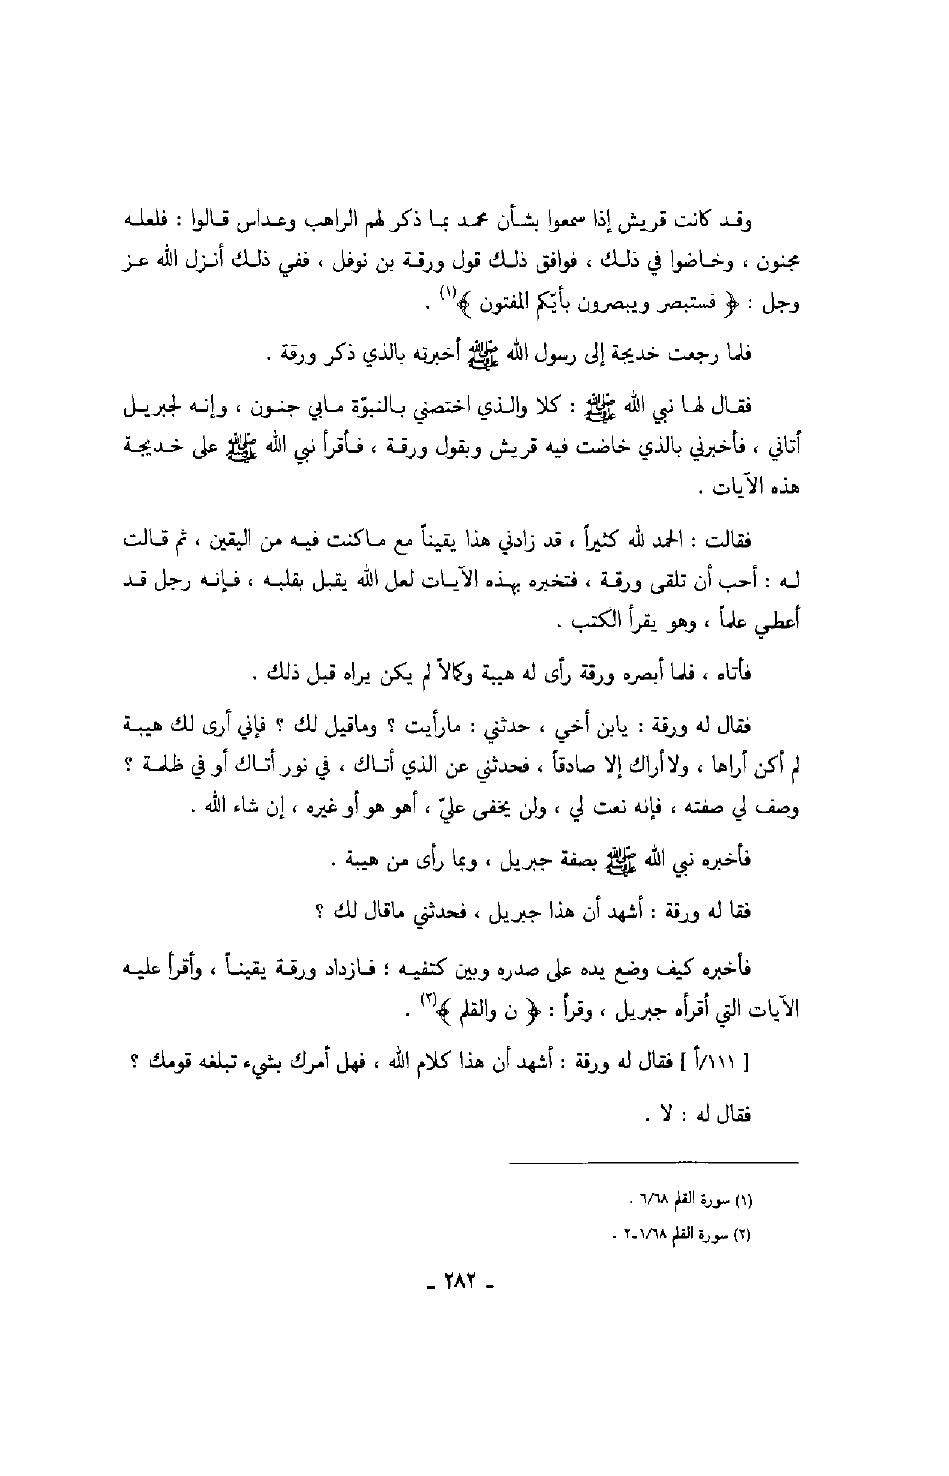 وقد كانت قريش إذا سمعوا بشأن محمد بما ذكر لهم الراهب وعداس قالوا : فلعله
مجنون ، وخاضوا في ذلك ، فوافق ذلك قول ورقة بن نوفل ، ففي ذلك أنزل الله عز
وجل : ﴿ فستبصر ويبصرون بأيّكم المفتون ﴾(١) .
فلما رجعت خديجة إلى رسول الله ﷺ أخبرته بالذي ذكر ورقة .
فقال لها نبي الله ﷺ : كلا والذي اختصني بالنبوّة مابي جنون ، وإنه لجبريل
أتاني ، فأخبرني بالذي خاضت فيه قريش وبقول ورقة ، فأقرأ نبي الله ﷺ على خديجة
هذه الآيات .
فقالت : الحمد لله كثيراً ، قد زادني هذا يقيناً مع ماكنت فيه من اليقين ، ثم قالت
له : أحب أن تلقى ورقة ، فتخبره بهذه الآيات لعل الله يقبل بقلبه ، فإنه رجل قد
أعطي علماً ، وهو يقرأ الكتب .
فأتاه ، فلما أبصره ورقة رأى له هيبة وكمالاً لم يكن يراه قبل ذلك .
فقال له ورقة : يابن أخي ، حدثني : مارأيت ؟ وماقيل لك ؟ فإني أرى لك هيبة
لم أكن أراها ، ولاأراك إلا صادقاً ، فحدثني عن الذي أتاك ، في نور أتاك أو في ظلمة ؟
وصف لي صفته ، فإنه نعت لي ، ولن يخفى عليّ ، أهو هو أو غيره ، إن شاء الله .
فأخبره نبي الله ﷺ بصفة جبريل ، وبما رأى من هيبة .
فقا له ورقة : أشهد أن هذا جبريل ، فحدثني ماقال لك ؟
فأخبره كيف وضع يده على صدره وبين كتفيه ؛ فازداد ورقة يقيناً ، وأقرأ عليه
الآيات التي أقرأه جبريل ، وقرأ : ﴿ ن والقلم ﴾(٢) .
[ ١١١/أ ] فقال له ورقة : أشهد أن هذا كلام الله ، فهل أمرك بشيء تبلغه قومك ؟
فقال له : لا .
(١) سورة القلم ٦/٦٨ .
(٢) سورة القلم ١/٦٨-٢ .
- ٢٨٢ -